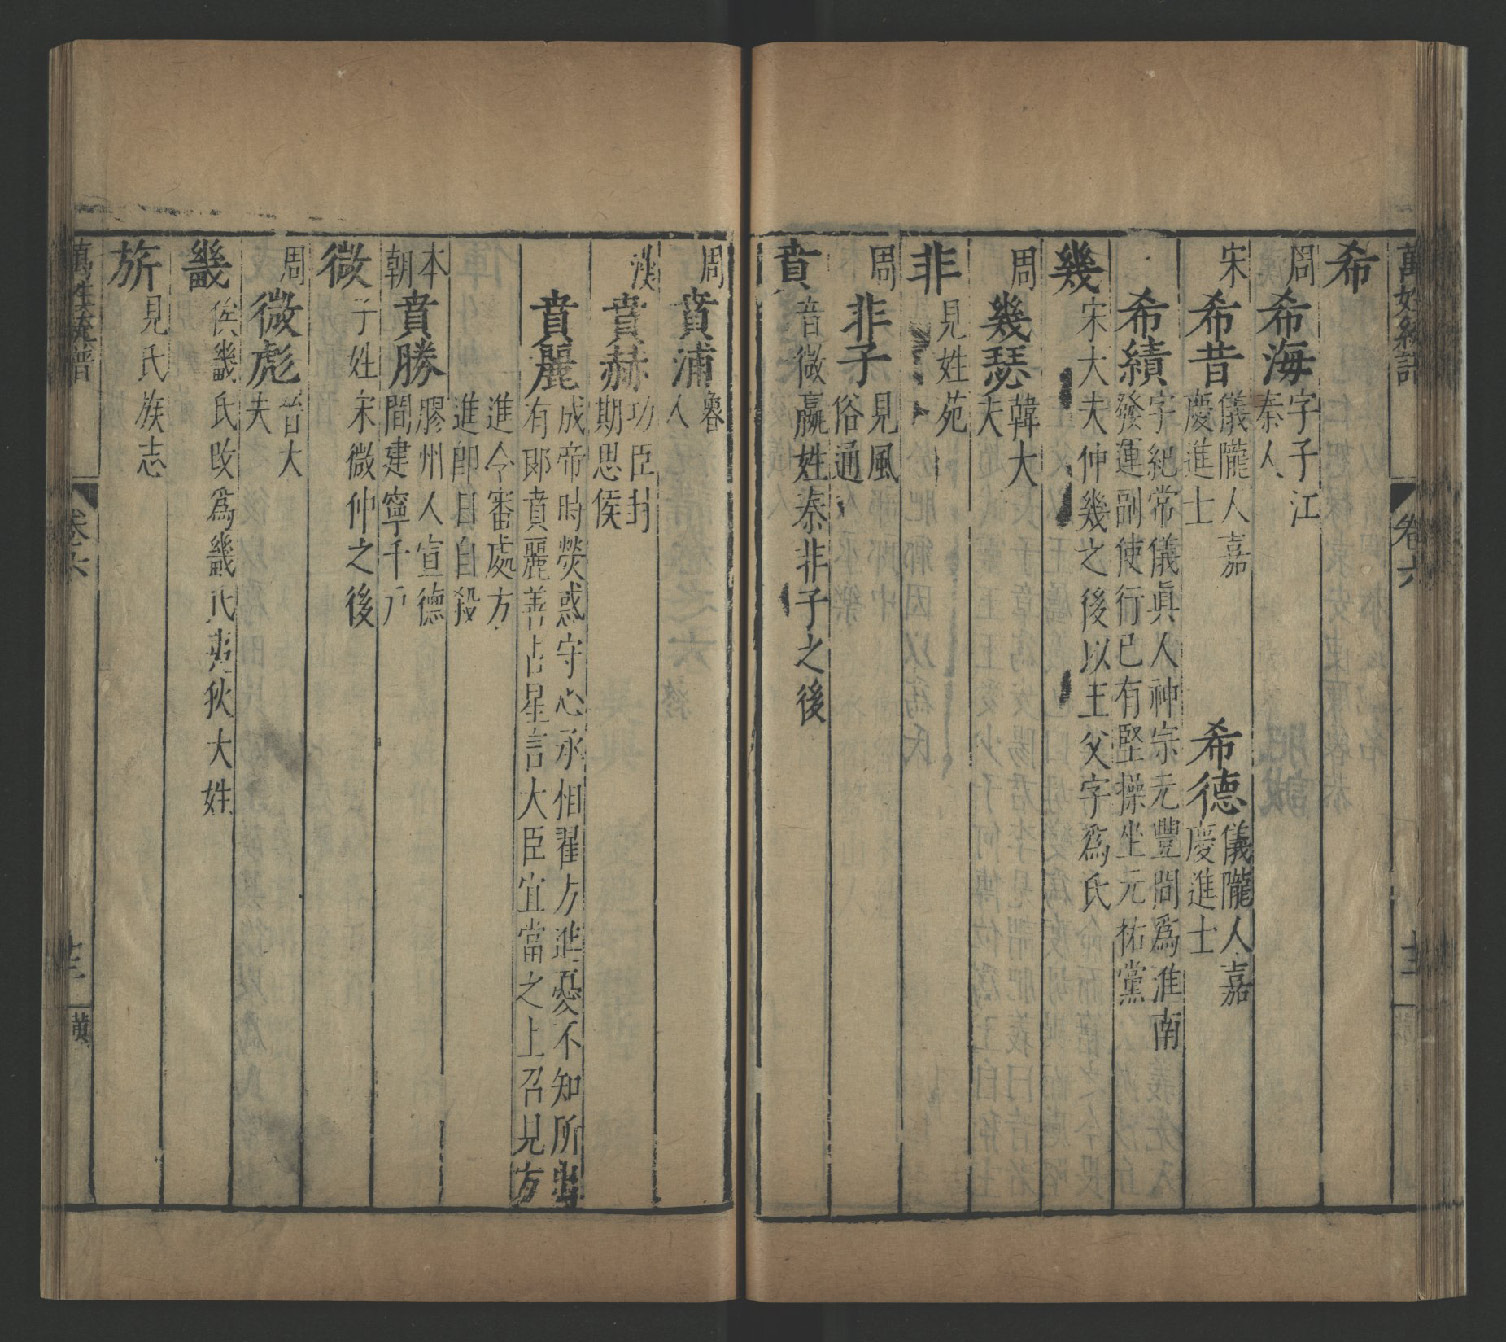 萬姓統譜
卷六
希
周 希海 字子江
秦人
宋 希昔 儀隴人嘉 慶進士 希德 儀隴人嘉 慶進士
希績 字紀常儀真人神宗元豐間爲淮南
發運副使行已有堅操坐元祐黨
幾 宋大夫仲幾之後以王父字爲氏
周 幾瑟 韓大
夫
非 見姓苑
周 非子 見風
俗通
賁 音微嬴姓秦非子之後
周 賁浦 魯
人
漢 賁赫 功臣封
期思侯
賁麗 成帝時熒惑守心丞相翟方進憂不知所出
有郎賁麗善占星言大臣宜當之上召見方
進令審處方
進即日自殺
本朝 賁勝 膠州人宣德
間建寧千戶
微 子姓宋微仲之後
周 微彪 晉大
夫
畿 侯畿氏改爲畿氏夷狄大姓
旂 見氏族志
萬姓統譜
卷六